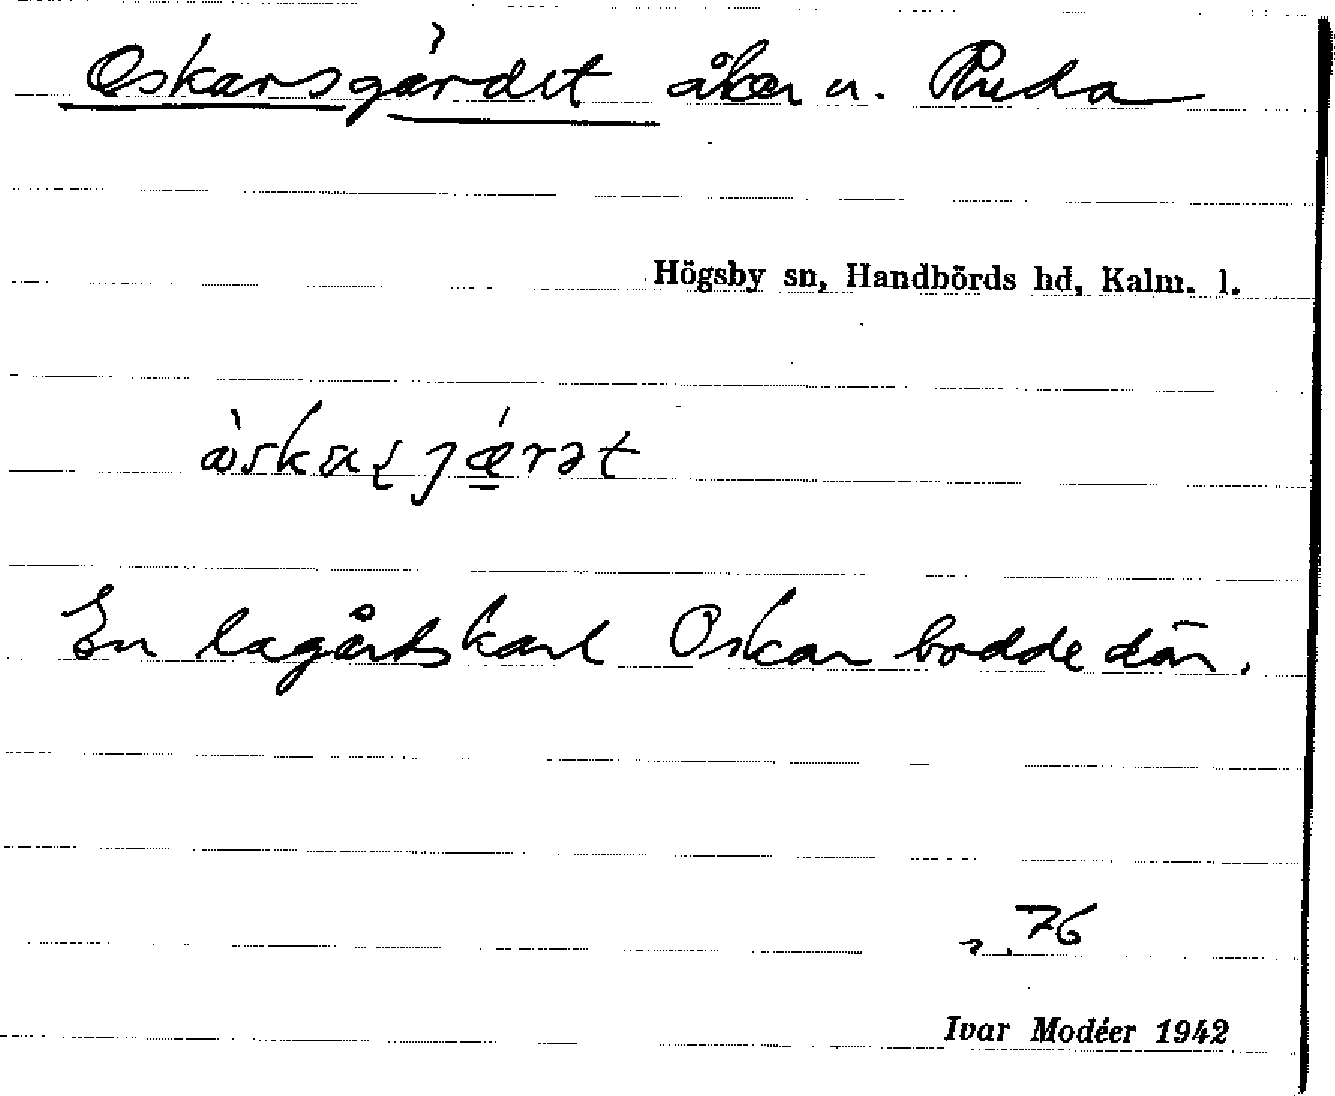 Oskarsgärdet åker u. Ruda
Högsby sn, Handbörds hd, Kalm. l.
En lagårdskarl Oskar bodde där.
76
Ivar Modéer 1942